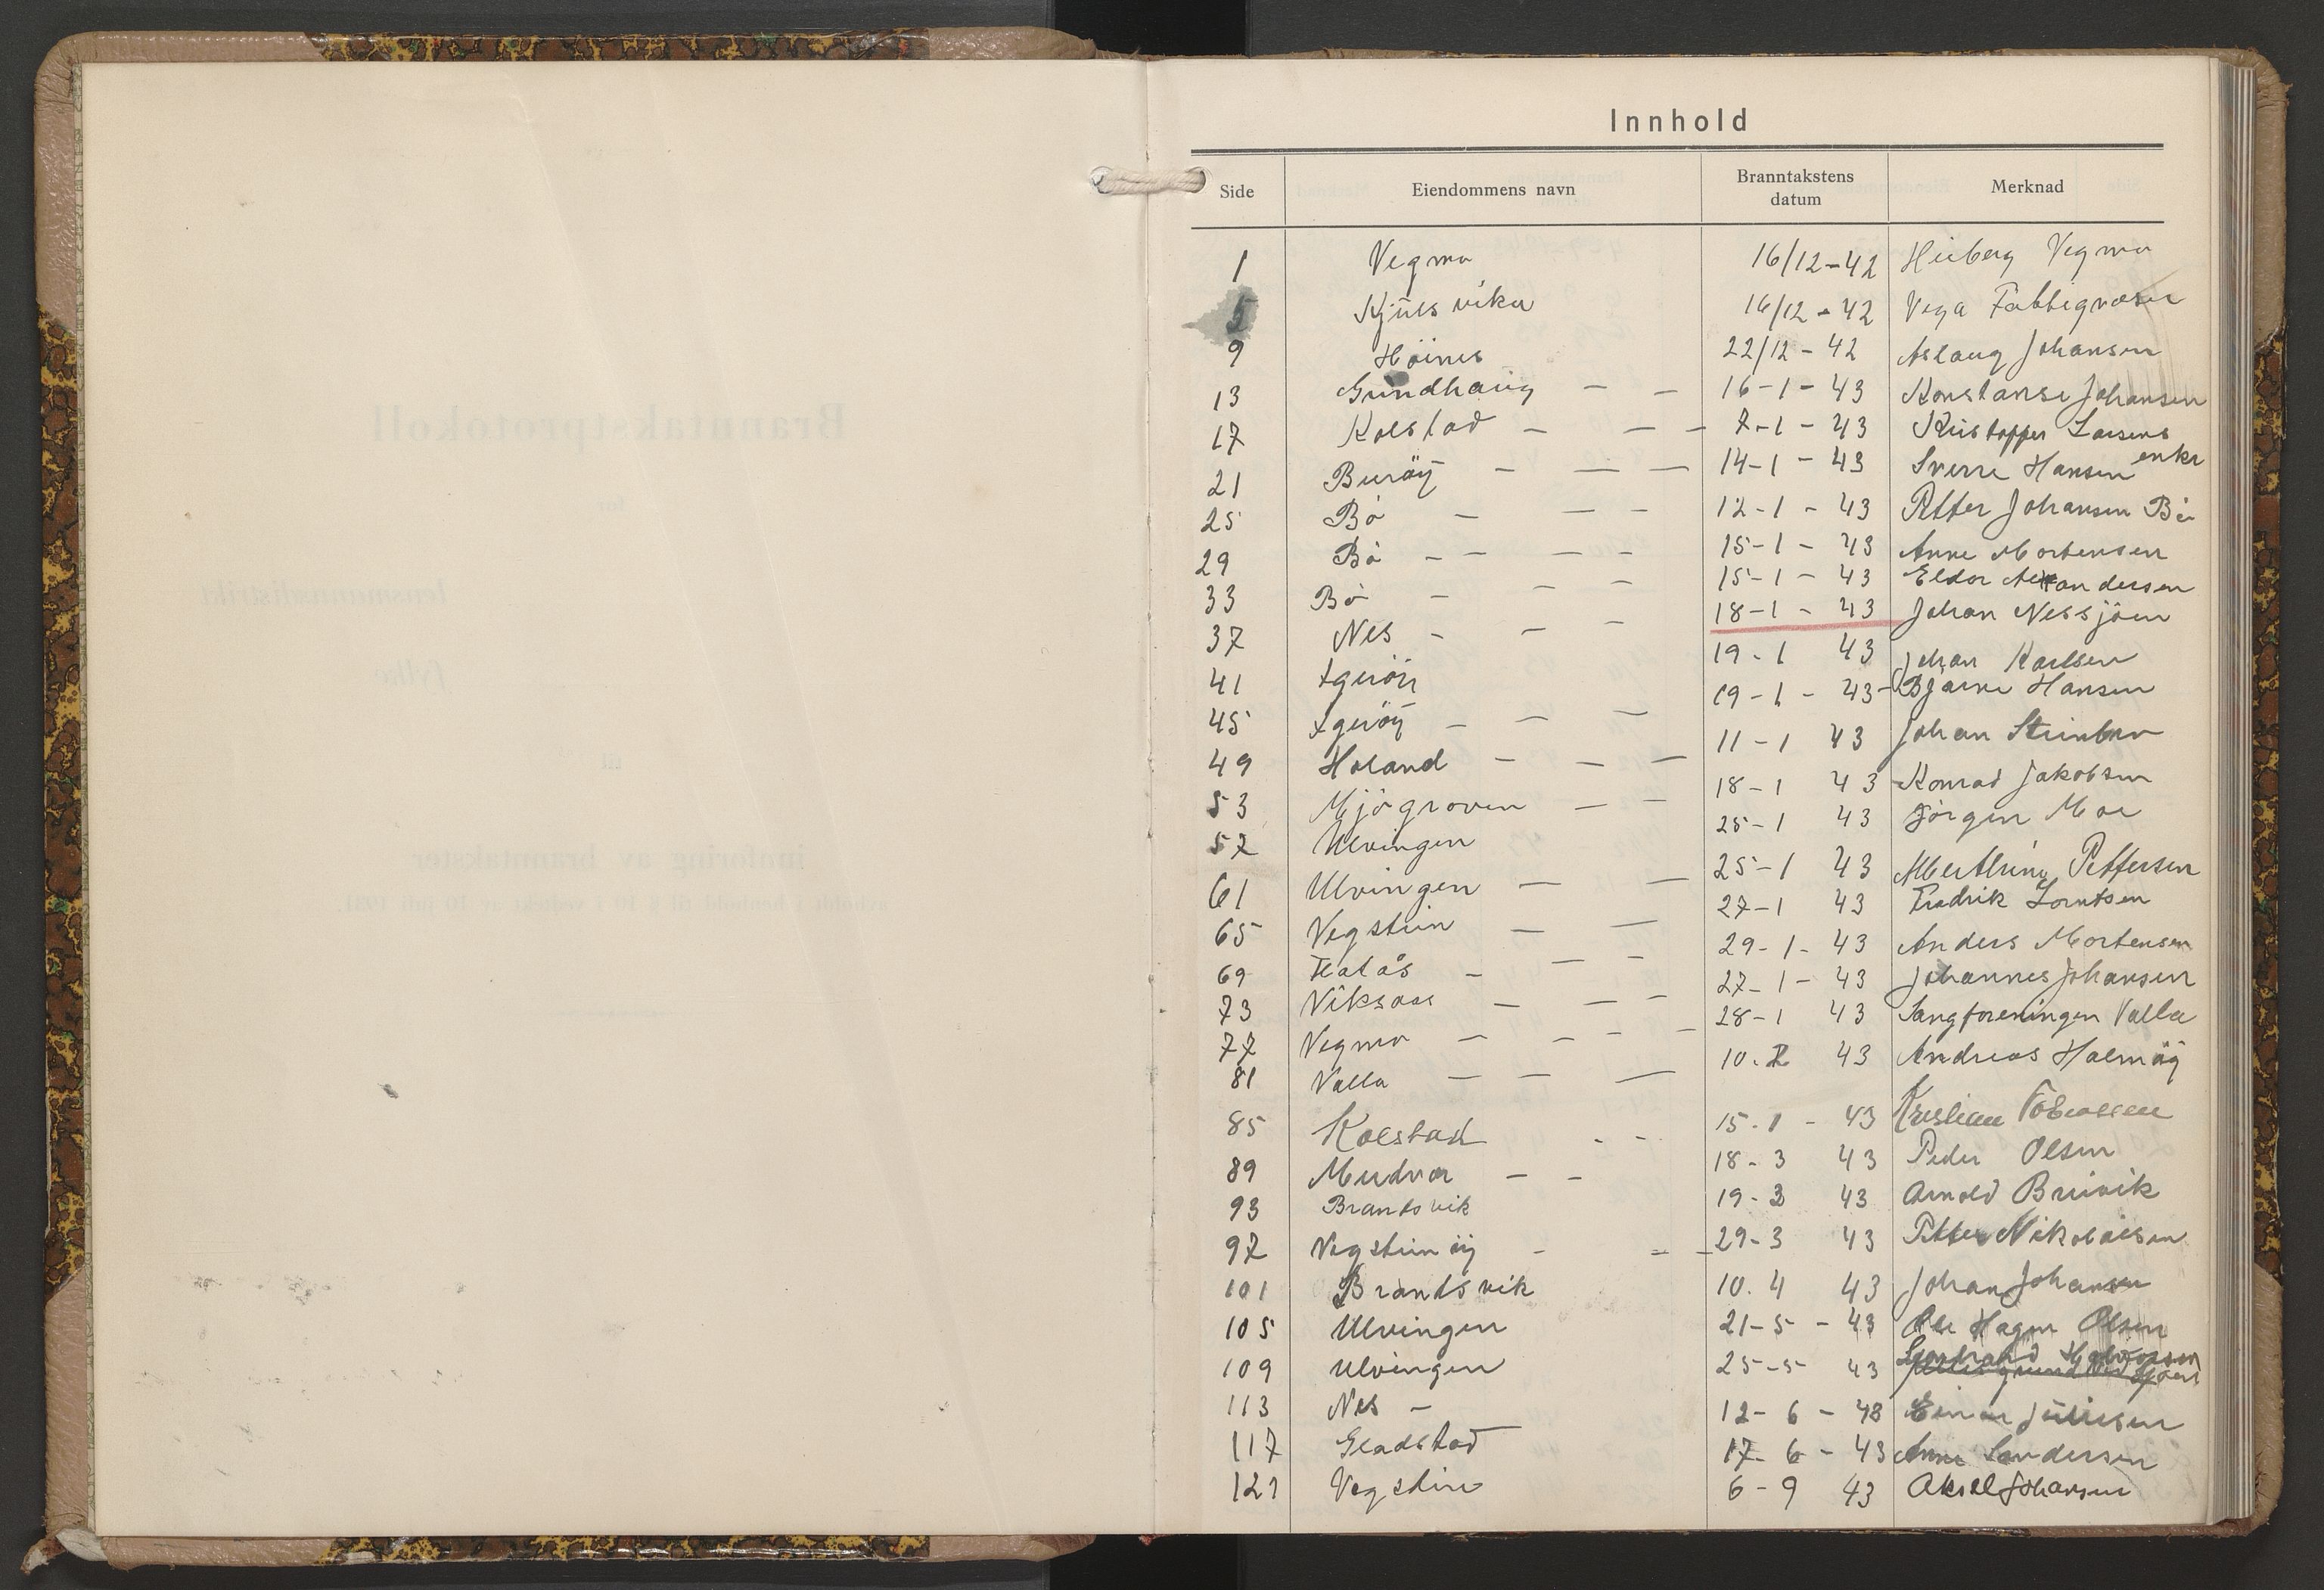 Innhold
Side Eiendommens navn Branntakstens datum Merknad
1 Vegmo 16/12-42 Heiberg Vegmo
5 Kjulsvika 16/12-42 Vega Fattigvæsen
9 Höines 22/12-42 Aslaug Johansen
13 Gundhaug — — 16-1-43 Konstanse Johansen
17 Kolstad — — — 7-1-43 Kristoffer Larsens enke
21 Buröy — — — 14-1-43 Sverre Hansen
25 Bö — — — 12-1-43 Petter Johansen Bö
29 Bö — — — — 15-1-43 Anne Mortensen
33 Bö — — — 15-1-43 Eldor
37 Nes — — — 18-1-43 Johan Nessjöen
41 Igeröy 19-1 43 Johan Karlsen
45 Igeröy — — — 19-1-43- Bjarne Hansen
49 Holand — — — 11-1 43 Johan
53 Mjögroven — — 18-1 43 Konrad Jakobsen
57 Ulvingen 25-1 43 Jörgen Moe
61 Ulvingen — — 25-1 43 Pettersen
65 Vegstein — — 27-1 43 Fredrik Lorntsen
69 — — — 29-1-43 Anders Mortensen
73 Viksaas — — — 27-1-43 Johannes Johansen
77 Vegmo — — — — 28-1 43 Sangforeningen Valla
81 Valla — — — 10.2 43 Andreas Halmöy
85 Kolstad - - 15-1-43 Kristian Tobiassen
89 Mudvær — — 18-3 43 Peder Olsen
93 Brandsvik 19-3 43 Arnold Breivik
97 Vegsteinöy - = - 29-3 43 Petter Nikolaisen
101 Brandsvik 10.4 43 Johan Johansen
105 Ulvingen 21-5-43 Ole Hagen Olsen
109 Ulvingen 25-5 43 Halvorsen
113 Nes — 12-6-43 Einar Juliesen
117 Gladstad 17-6-43 Anne Sandersen
121 Vegstein 6-9 43 Aksel Johansen
Branntakstprotokoll
for
lensmannsdistrikt
fylke
til
innføring av branntakster